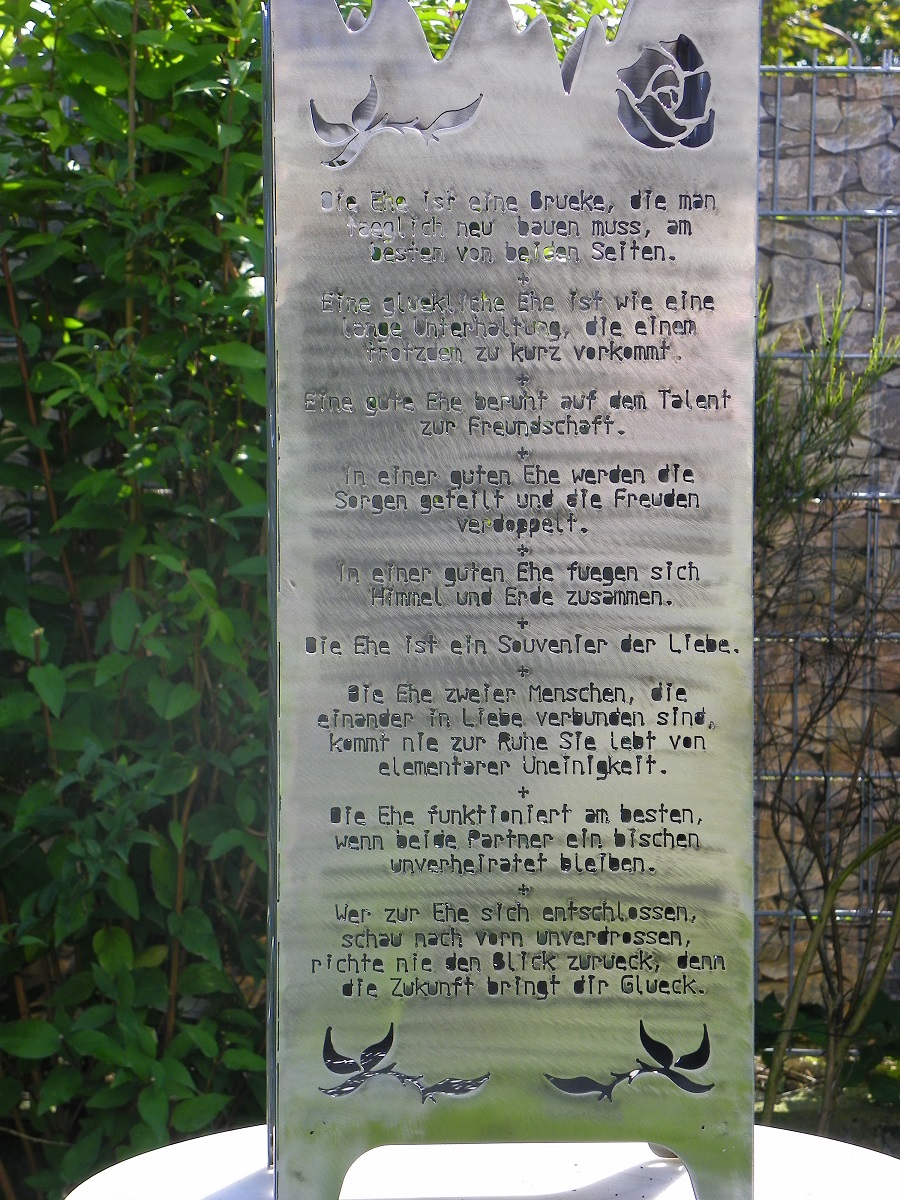 Die Ehe ist eine Brueke, die man
taeglich neu bauen muss, am
besten von beiden Seiten.
+
Eine gluekliche Ehe ist wie eine
lange Unterhaltung, die einem
trotzdem zu kurz vorkommt.
+
Eine gute Ehe beruht auf dem Talent
zur Freundschaft.
+
In einer guten Ehe werden die
Sorgen geteilt und die Freuden
verdoppelt.
+
In einer guten Ehe fuegen sich
Himmel und Erde zusammen.
+
Die Ehe ist ein Souvenier der Liebe.
+
Die Ehe zweier Menschen, die
einander in Liebe verbunden sind,
kommt nie zur Ruhe Sie lebt von
elementarer Uneinigkeit.
+
Die Ehe funktioniert am besten,
wenn beide Partner ein bischen
unverheiratet bleiben.
+
Wer zur Ehe sich entschlossen,
schau nach vorn unverdrossen,
richte nie den Blick zurueck, denn
die Zukunft bringt dir Glueck.